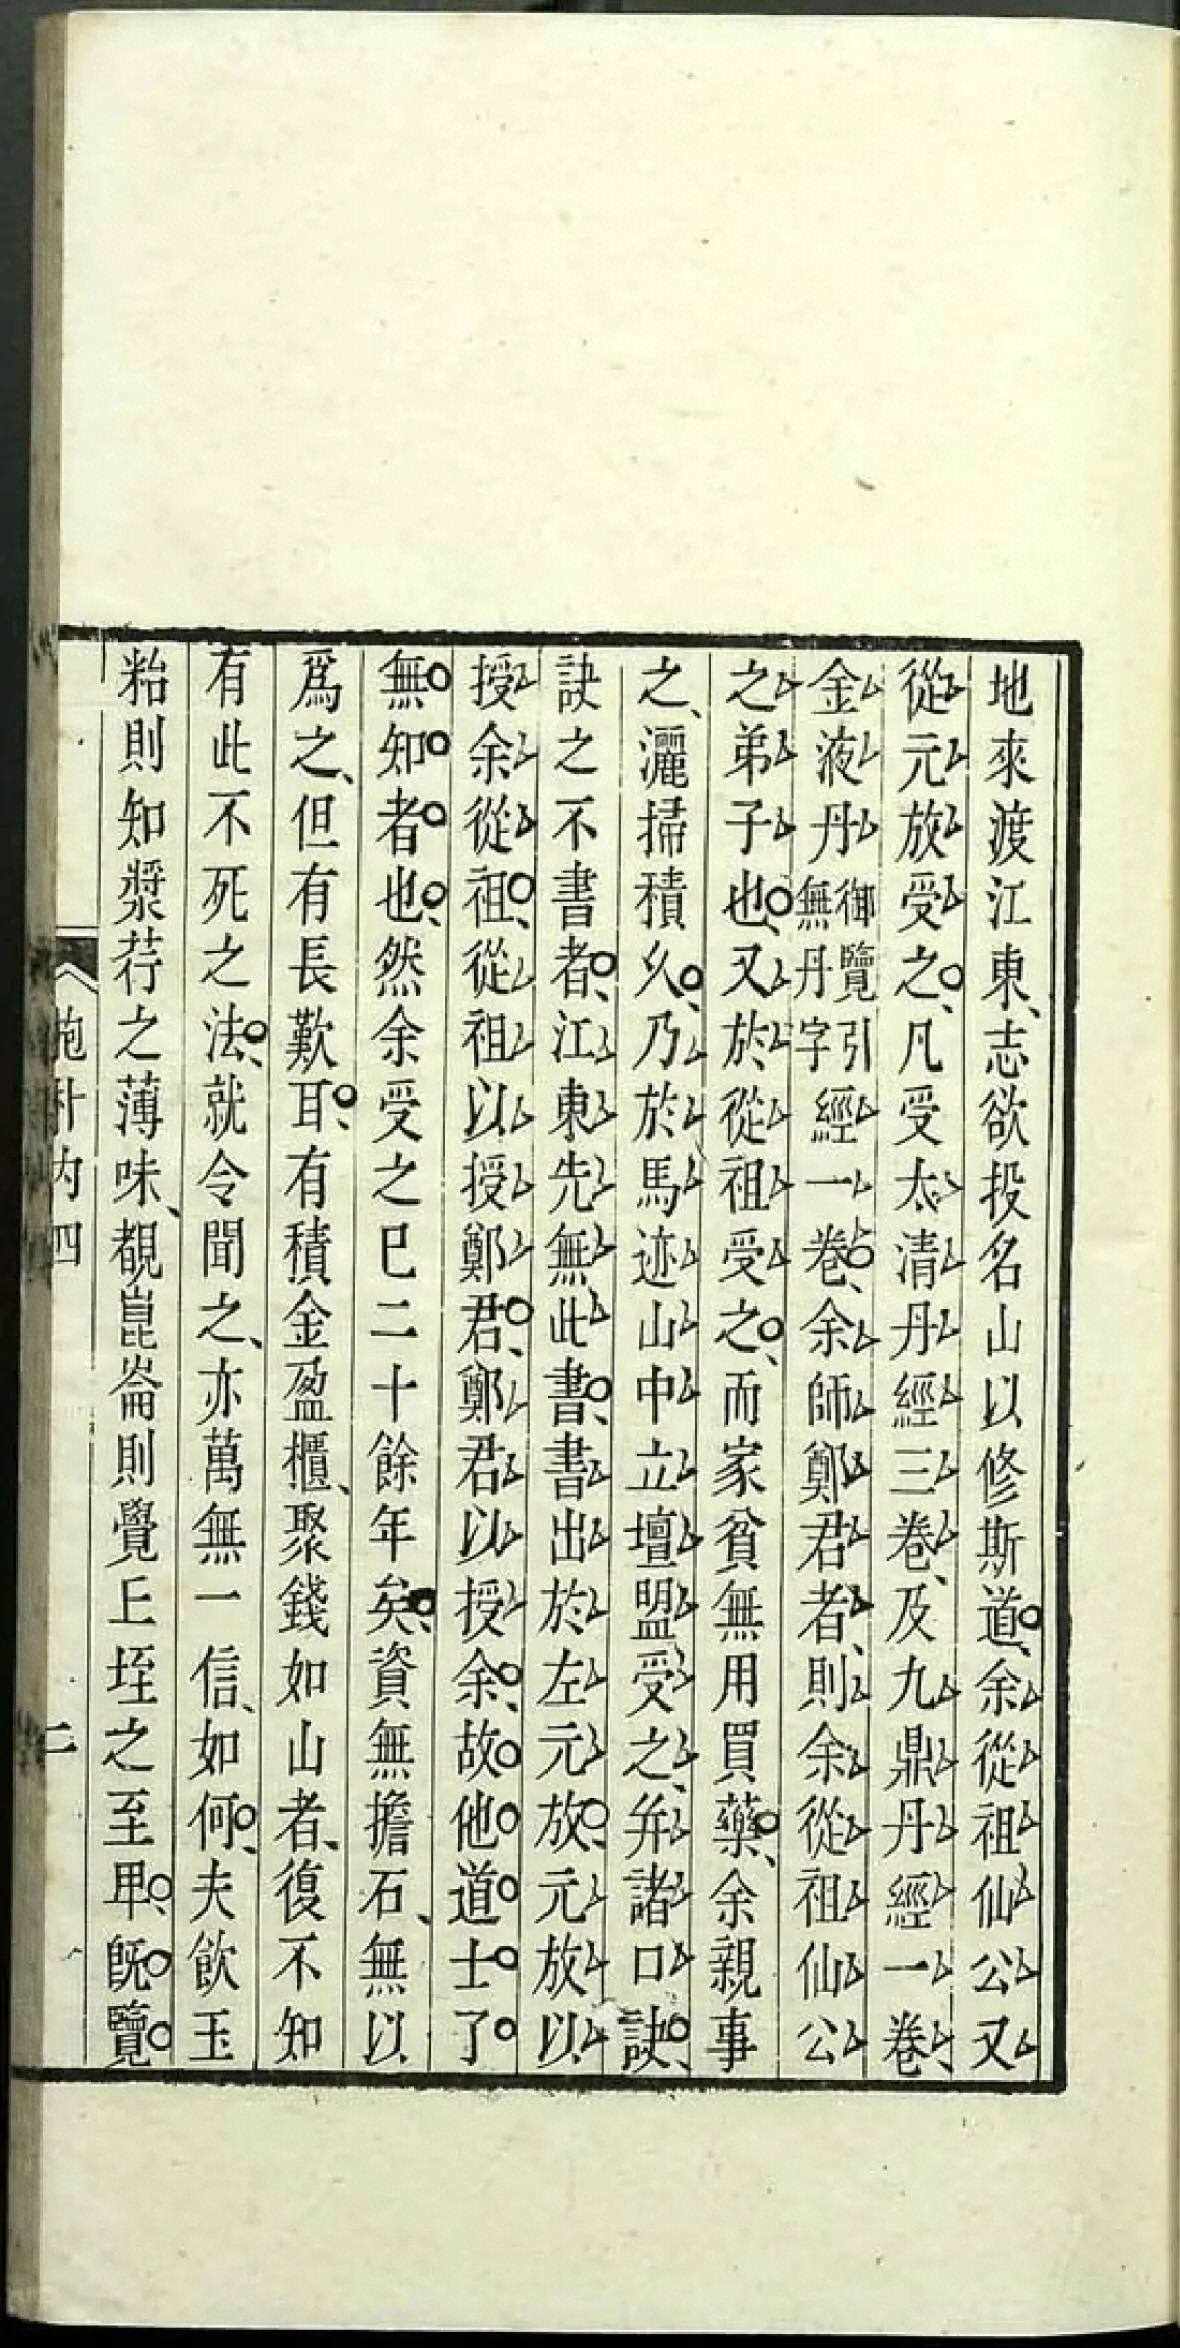 地來渡江東、志欲投名山以修斯道。余從祖仙公又
從元放受之。凡受太清丹經三卷、及九鼎丹經一卷、
金液丹御覽引無丹字經一卷。余師鄭君者、則余從祖仙公
之弟子也。又於從祖受之。而家貧無用買藥。余親事
之、灑掃積久。乃於馬迹山中立壇盟受之、并諸口訣。
訣之不書者。江東先無此書。書出於左元放。元放以
授余從祖。從祖以授鄭君。鄭君以授余。故他道士了
無知者也。然余受之巳二十餘年矣。資無擔石、無以
爲之、但有長歎耳。有積金盈櫃、聚錢如山者、復不知
有此不死之法。就令聞之、亦萬無一信、如何。夫飲玉
粭則知漿荇之薄味、覩崑崙則覺丘垤之至卑。旣覽
抱朴內四
二